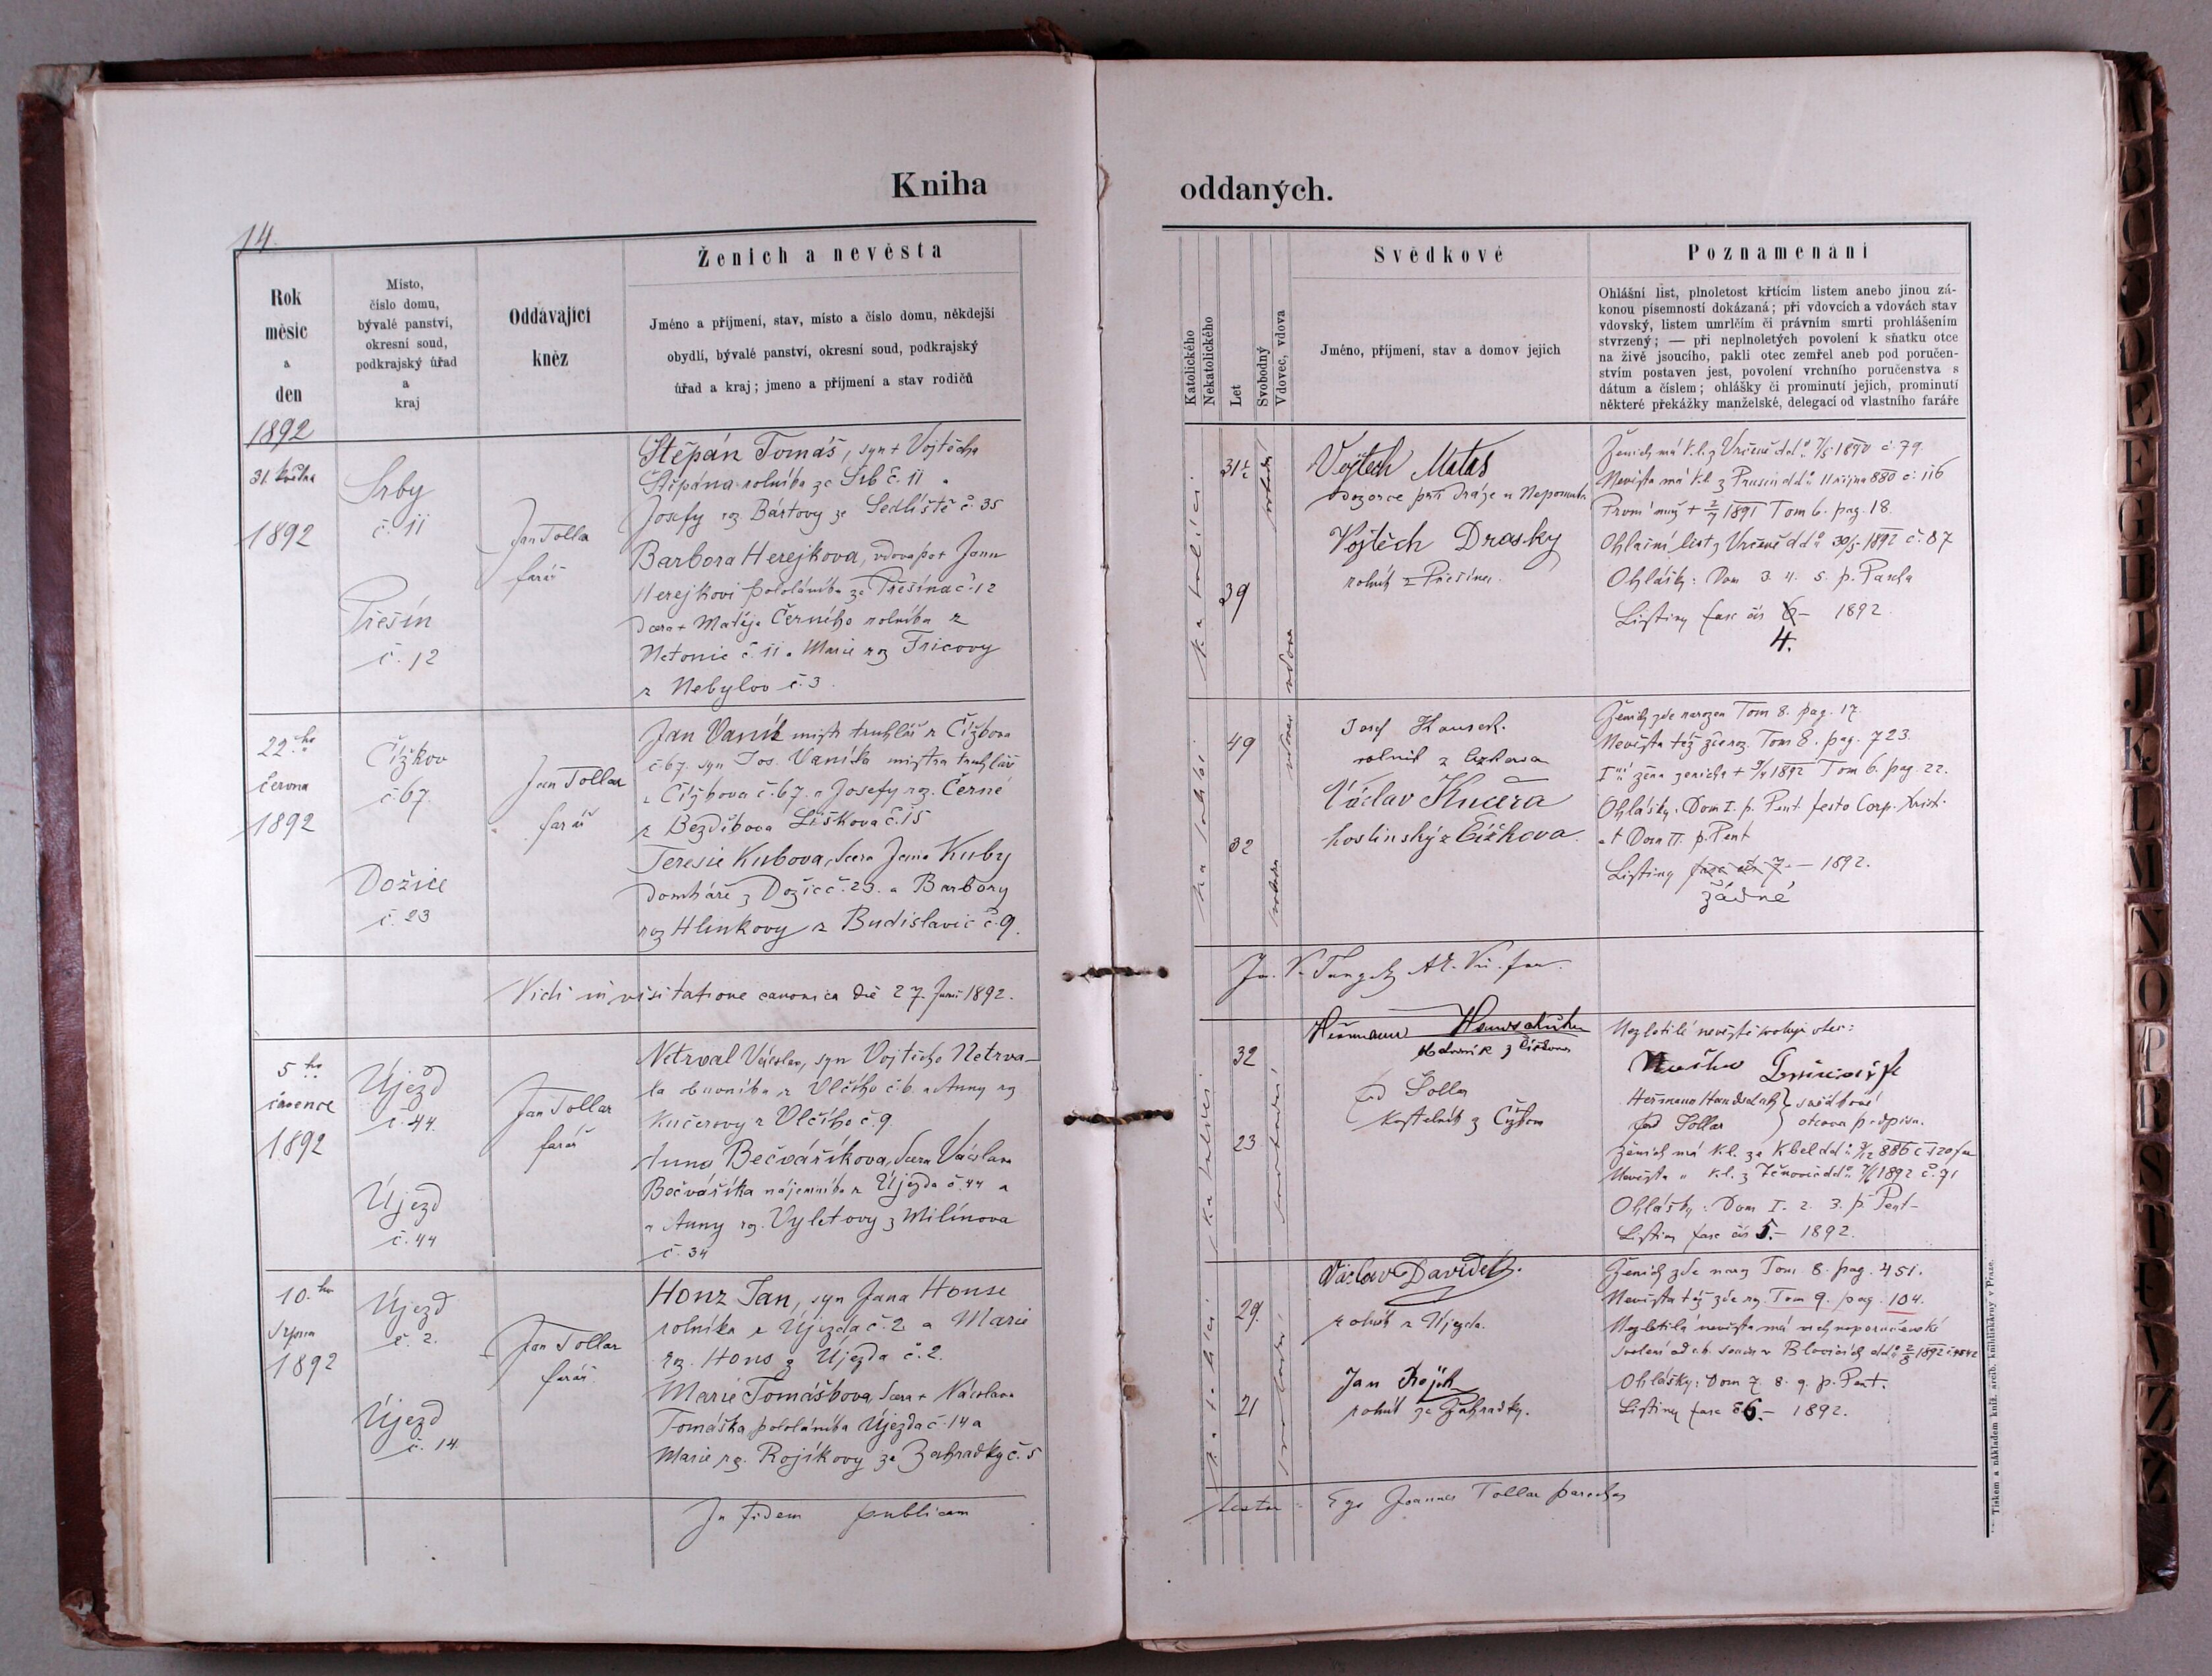 Kniha
oddaných.
14.
Rok
měsíc
a
den
Místo,
číslo domu,
bývalé panství,
okresní soud,
podkrajský úřad
a
kraj
Oddávající
kněz
Ženich a nevěsta
Jméno a příjmení, stav, místo a číslo domu, někdejší
obydlí, bývalé panství, okresní soud, podkrajský
úřad a kraj; jmeno a příjmení a stav rodičů
Katolického
Nekatolického
Let
Svobodný
Vdovec, vdova
Svědkové
Jméno, příjmení, stav a domov jejich
Poznamenání
Ohlášní list, plnoletost křtícím listem anebo jinou zá-
konou písemností dokázaná; při vdovcích a vdovách stav
vdovský, listem umrlčím či právním smrti prohlášením
stvrzený; — při neplnoletých povolení k sňatku otce
na živě jsoucího, pakli otec zemřel aneb pod poručen-
stvím postaven jest, povolení vrchního poručenstva s
dátum a číslem; ohlášky či prominutí jejich, prominutí
některé překážky manželské, delegací od vlastního faráře
1892
31. května
1892
Srby
č. 11
Přešín
č. 12
Jan Tolla
farář
Štěpán Tomáš, syn + Vojtěcha
Štěpána rolníka ze Srb č. 11 a
Josefy roz. Bártovy ze Sedliště č. 35
Barbora Herejkova, vdova po + Janu
Herejkovi pololáníka ze Přešína č. 12
dcera + Matěje Černého rolníka z
Netonic č. 11 a Marie roz Fricovy
z Nebylov č. 3.
katolíci
31½
39
svobodný
vdova
Vojtěch Mataš
dozorce při dráze u Nepomuka
Vojtěch Drasky
rolník z Přešína.
Ženich má k.l. z Vrčeně dd. 7/5 1890 č. 79.
Nevěsta má k.l. z Prusin dd. 11 října 880 č. 116
První muž + 2/7 1891 Tom 6. pag. 18.
Ohlašní list z Vrčeně dd. 30/5 1892 č. 87
Ohlášky: Dom 3. 4. 5. p. Pascha
Listiny fasc čís 6 – 1892.
4.
22.ho
června
1892
Čížkov
č. 67.
Dožice
č. 23
Jan Tollar
farář
Jan Vaník mistr truhlář z Čížkova
č. 67. syn Jos. Vaníka mistra truhláře
z Čížkova č. 67. a Josefy roz. Černé
z Bezděkova Liškova č. 15
Teresie Kubova, dcera Jana Kuby
domkáře z Dožic č. 23. a Barbory
roz Hlinkovy z Budislavic č. 9.
katolíci
49
32
vdovec
svobodná
Josef Hauser.
rolník z Čížkova
Václav Kučera
hostinský z Čížkova.
Ženich zde narozen Tom 8. pag. 17.
Nevěsta též zde roz. Tom 8. pag. 723.
I. žena ženicha + 9/4 1892 Tom 6. pag. 22.
Ohlášky: Dom I. p. Pent. festo Corp. Christ.
et Dom II. p. Pent
Listiny fasc čís 7. – 1892.
žádné
Vidi in visitatione canonica die 27. Junii 1892.
5.ho
července
1892
Újezd
č. 44.
Újezd
č. 44
Jan Tollar
farář
Netrval Václav, syn Vojtěcha Netrva-
la obuvníka z Vlčího č. 6. a Anny roz
Kučerovy z Vlčího č. 9.
Anna Bečváříkova, dcera Václava
Bečváříka nájemníka z Újezda č. 44 a
a Anny roz. Vyletovy z Milínova
č. 34
katolíci
32
23
svobodní
Heřmann Hanuschka
z Čížkova
Tollar
Kostelník z Čížkova
Nezletilé nevěstě svoluje otec:
Tollar } svědkové
otcova podpisu.
Ženich má k.l. ze Kbel dd. 9/12 886 č. 120
Nevěsta " k.l. z Žinkovic dd. 7/6 1892 č. 71
Ohlášky: Dom I. 2. 3. p. Pent –
Listiny fasc čís 5. – 1892.
10.ho
srpna
1892
Újezd
č. 2.
Újezd
č. 14.
Jan Tollar
farář.
Honz Jan, syn Jana Honse
rolníka z Újezda č. 2 a Marie
roz. Hons z Újezda č. 2.
Marie Tomáškova, dcera + Václava
Tomáška pololáníka Újezda č. 14 a
Marie roz. Rojíkovy ze Zahradky č. 5
katolíci
29.
21
svobodní
Václav Davídek.
rolník z Újezda.
Jan Rojík
rolník ze Zahradky.
Ženich zde naroz Tom. 8. pag. 451.
Nevěsta též zde roz. Tom 9. pag. 104.
Nezletilá nevěsta má vrchnoporučenské
svolení od c.k. soudu v Blovicích dd. 2/8 1892 č. 4542
Ohlášky: Dom 7. 8. 9. p. Pent.
Listiny fasc č 6. – 1892.
In fidem publicam
testor: Ego Joannes Tollar parochus
Tiskem a nákladem kníž. arcib. knihtiskárny v Praze.